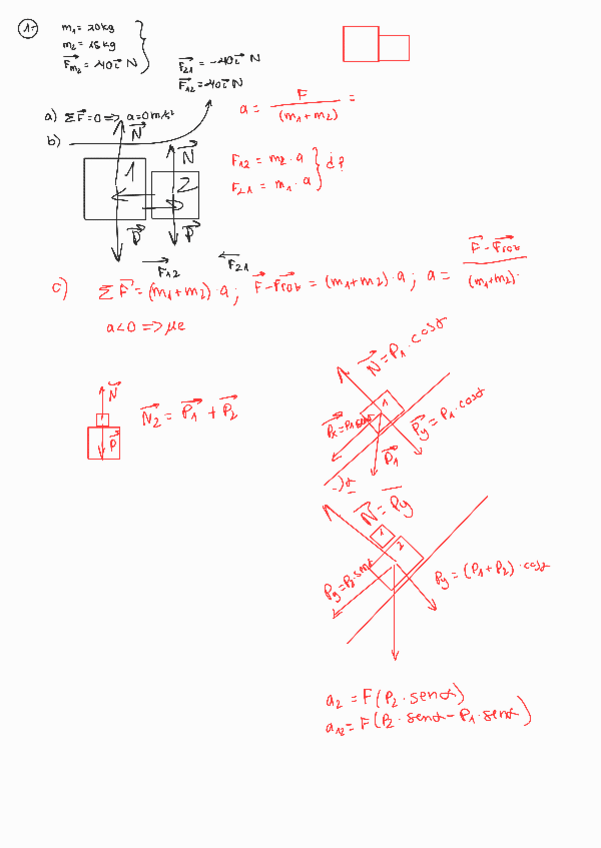 1-
m₁ = 20kg
m₂ = 15kg
F⃗m₂ = 40i⃗ N
F⃗₂₁ = -40i⃗ N
F⃗₁₂ = 40i⃗ N
a) ΣF⃗ = 0 => a = 0 m/s²
b)
N⃗
N⃗
1
2
P⃗
P⃗
F⃗₁₂
F⃗₂₁
a = F / (m₁+m₂) =
F₁₂ = m₂ · a
F₂₁ = m₁ · a
¿?
c) ΣF⃗ = (m₁+m₂) · a ; F⃗ - F⃗roz = (m₁+m₂) · a ; a = F⃗ - F⃗roz / (m₁+m₂)
a<0 => μe
N⃗
P⃗
N⃗₂ = P⃗₁ + P⃗₂
N⃗ = P₁ · cosα
1
P⃗x = P₁ senα
P⃗y = P₁ · cosα
P⃗₁
α
N⃗ = Py
1
2
Py = P₂ · senα
Py = (P₁ + P₂) · cosα
a₂ = F(P₂ · senα)
a₁₂ = F(P₂ · senα - P₁ · senα)